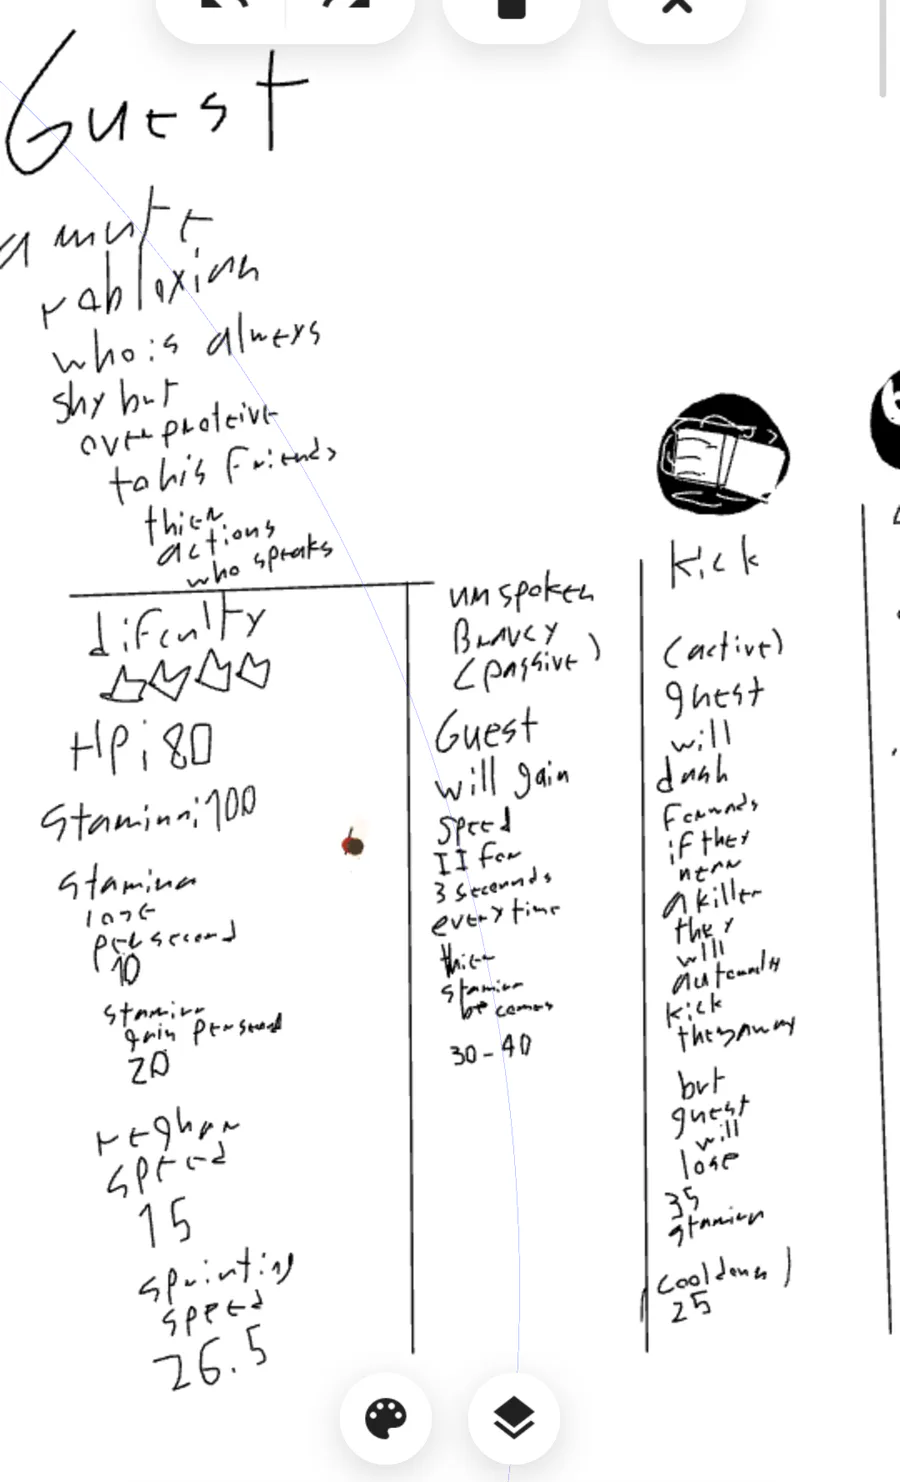 Guest
a mute
robloxian
who is always
shy but
over proteive
to his friends
thier
actions
who speaks
difculty
HP: 80
Stamina: 100
Stamina
lose
per second
10
stamina
gain per second
20
reghar
speed
15
sprinting
speed
26.5
unspoken
Bravey
(passive)
Guest
will gain
speed
II for
3 seconds
every time
thier
stamina
becomes
30-40
kick
(active)
guest
will
dash
if they
near
a killer
they
will
kick
but
guest
will
lose
35
stamina
25